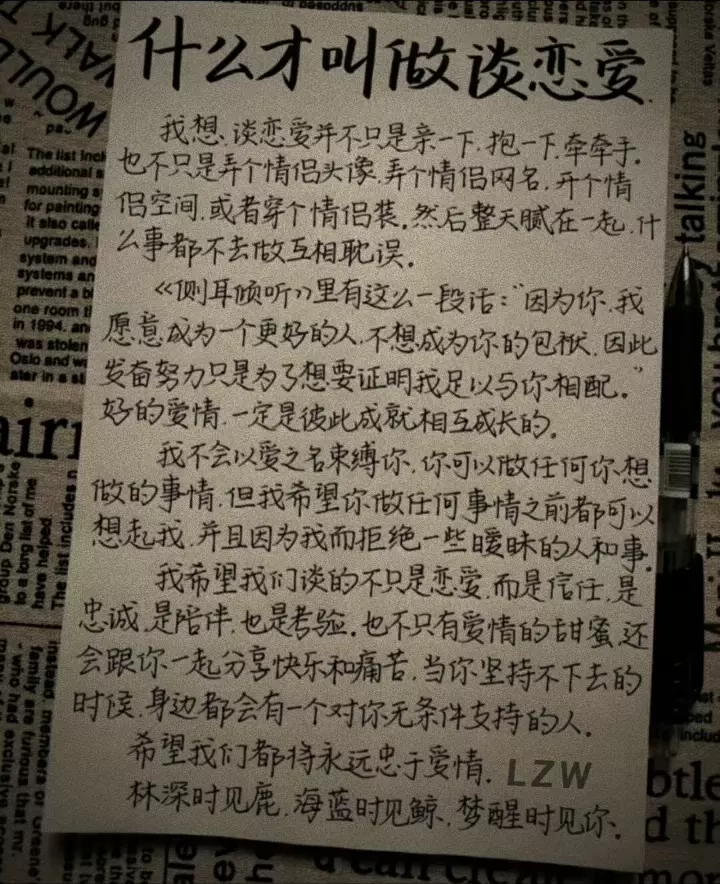 什么才叫做谈恋爱
我想、谈恋爱并不只是亲一下.抱一下.牵牵手.
也不只是弄个情侣头像.弄个情侣网名.开个情
侣空间.或者穿个情侣装。然后整天腻在一起.什
么事都不去做互相耽误。
《侧耳倾听》里有这么一段话:"因为你.我
愿意成为一个更好的人.不想成为你的包袱.因此
发奋努力只是为了想要证明我足以与你相配。"
好的爱情.一定是彼此成就相互成长的。
我不会以爱之名束缚你.你可以做任何你想
做的事情.但我希望你做任何事情之前都可以
想起我.并且因为我而拒绝一些暧昧的人和事.
我希望我们谈的不只是恋爱.而是信任.是
忠诚.是陪伴.也是考验。也不只有爱情的甜蜜.还
会跟你一起分享快乐和痛苦.当你坚持不下去的
时侯.身边都会有一个对你无条件支持的人.
希望我们都将永远忠于爱情. LZW
林深时见鹿.海蓝时见鲸.梦醒时见你.
WOULD
WALK T
The list incl
additional s
mounting s
for painting
it also calle
upgrades.
system and
systems an
prevent a b
one room t
in 1994. an
was stolen
Oslo and w
ster in a st
group Den Norske
to a long list of me
have helped
The list includes n
instead, members or
family are furious that mr.
- who had exclusive
talking
btle
d th